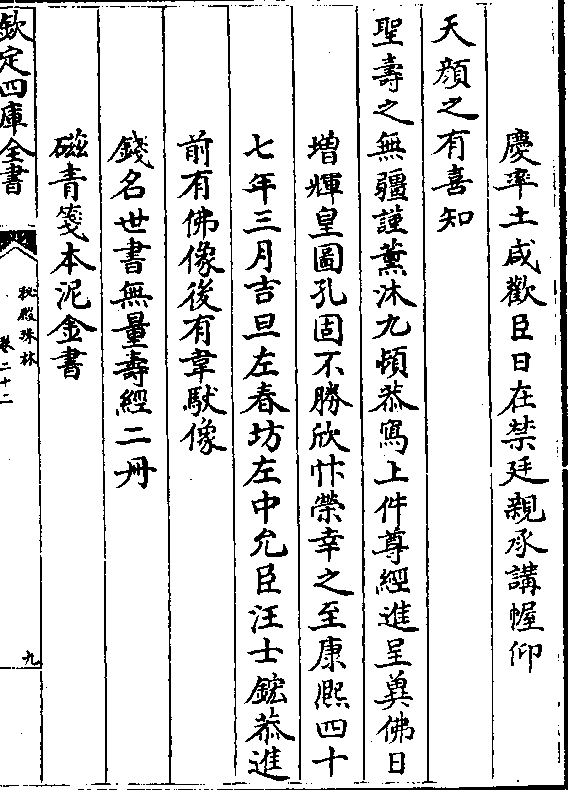 慶率土咸歡臣日在禁廷親承講幄仰
天顔之有喜知
聖壽之無疆謹薰沐九頓恭寫上件尊經進呈兾佛日
増輝皇圖孔固不勝欣忭榮幸之至康熈四十
七年三月吉旦左春坊左中允臣汪士鋐恭進
前有佛像後有韋馱像
錢名世書無量壽經二冊
磁青箋本泥金書
欽定四庫全書
秘殿珠林
卷二十二
九